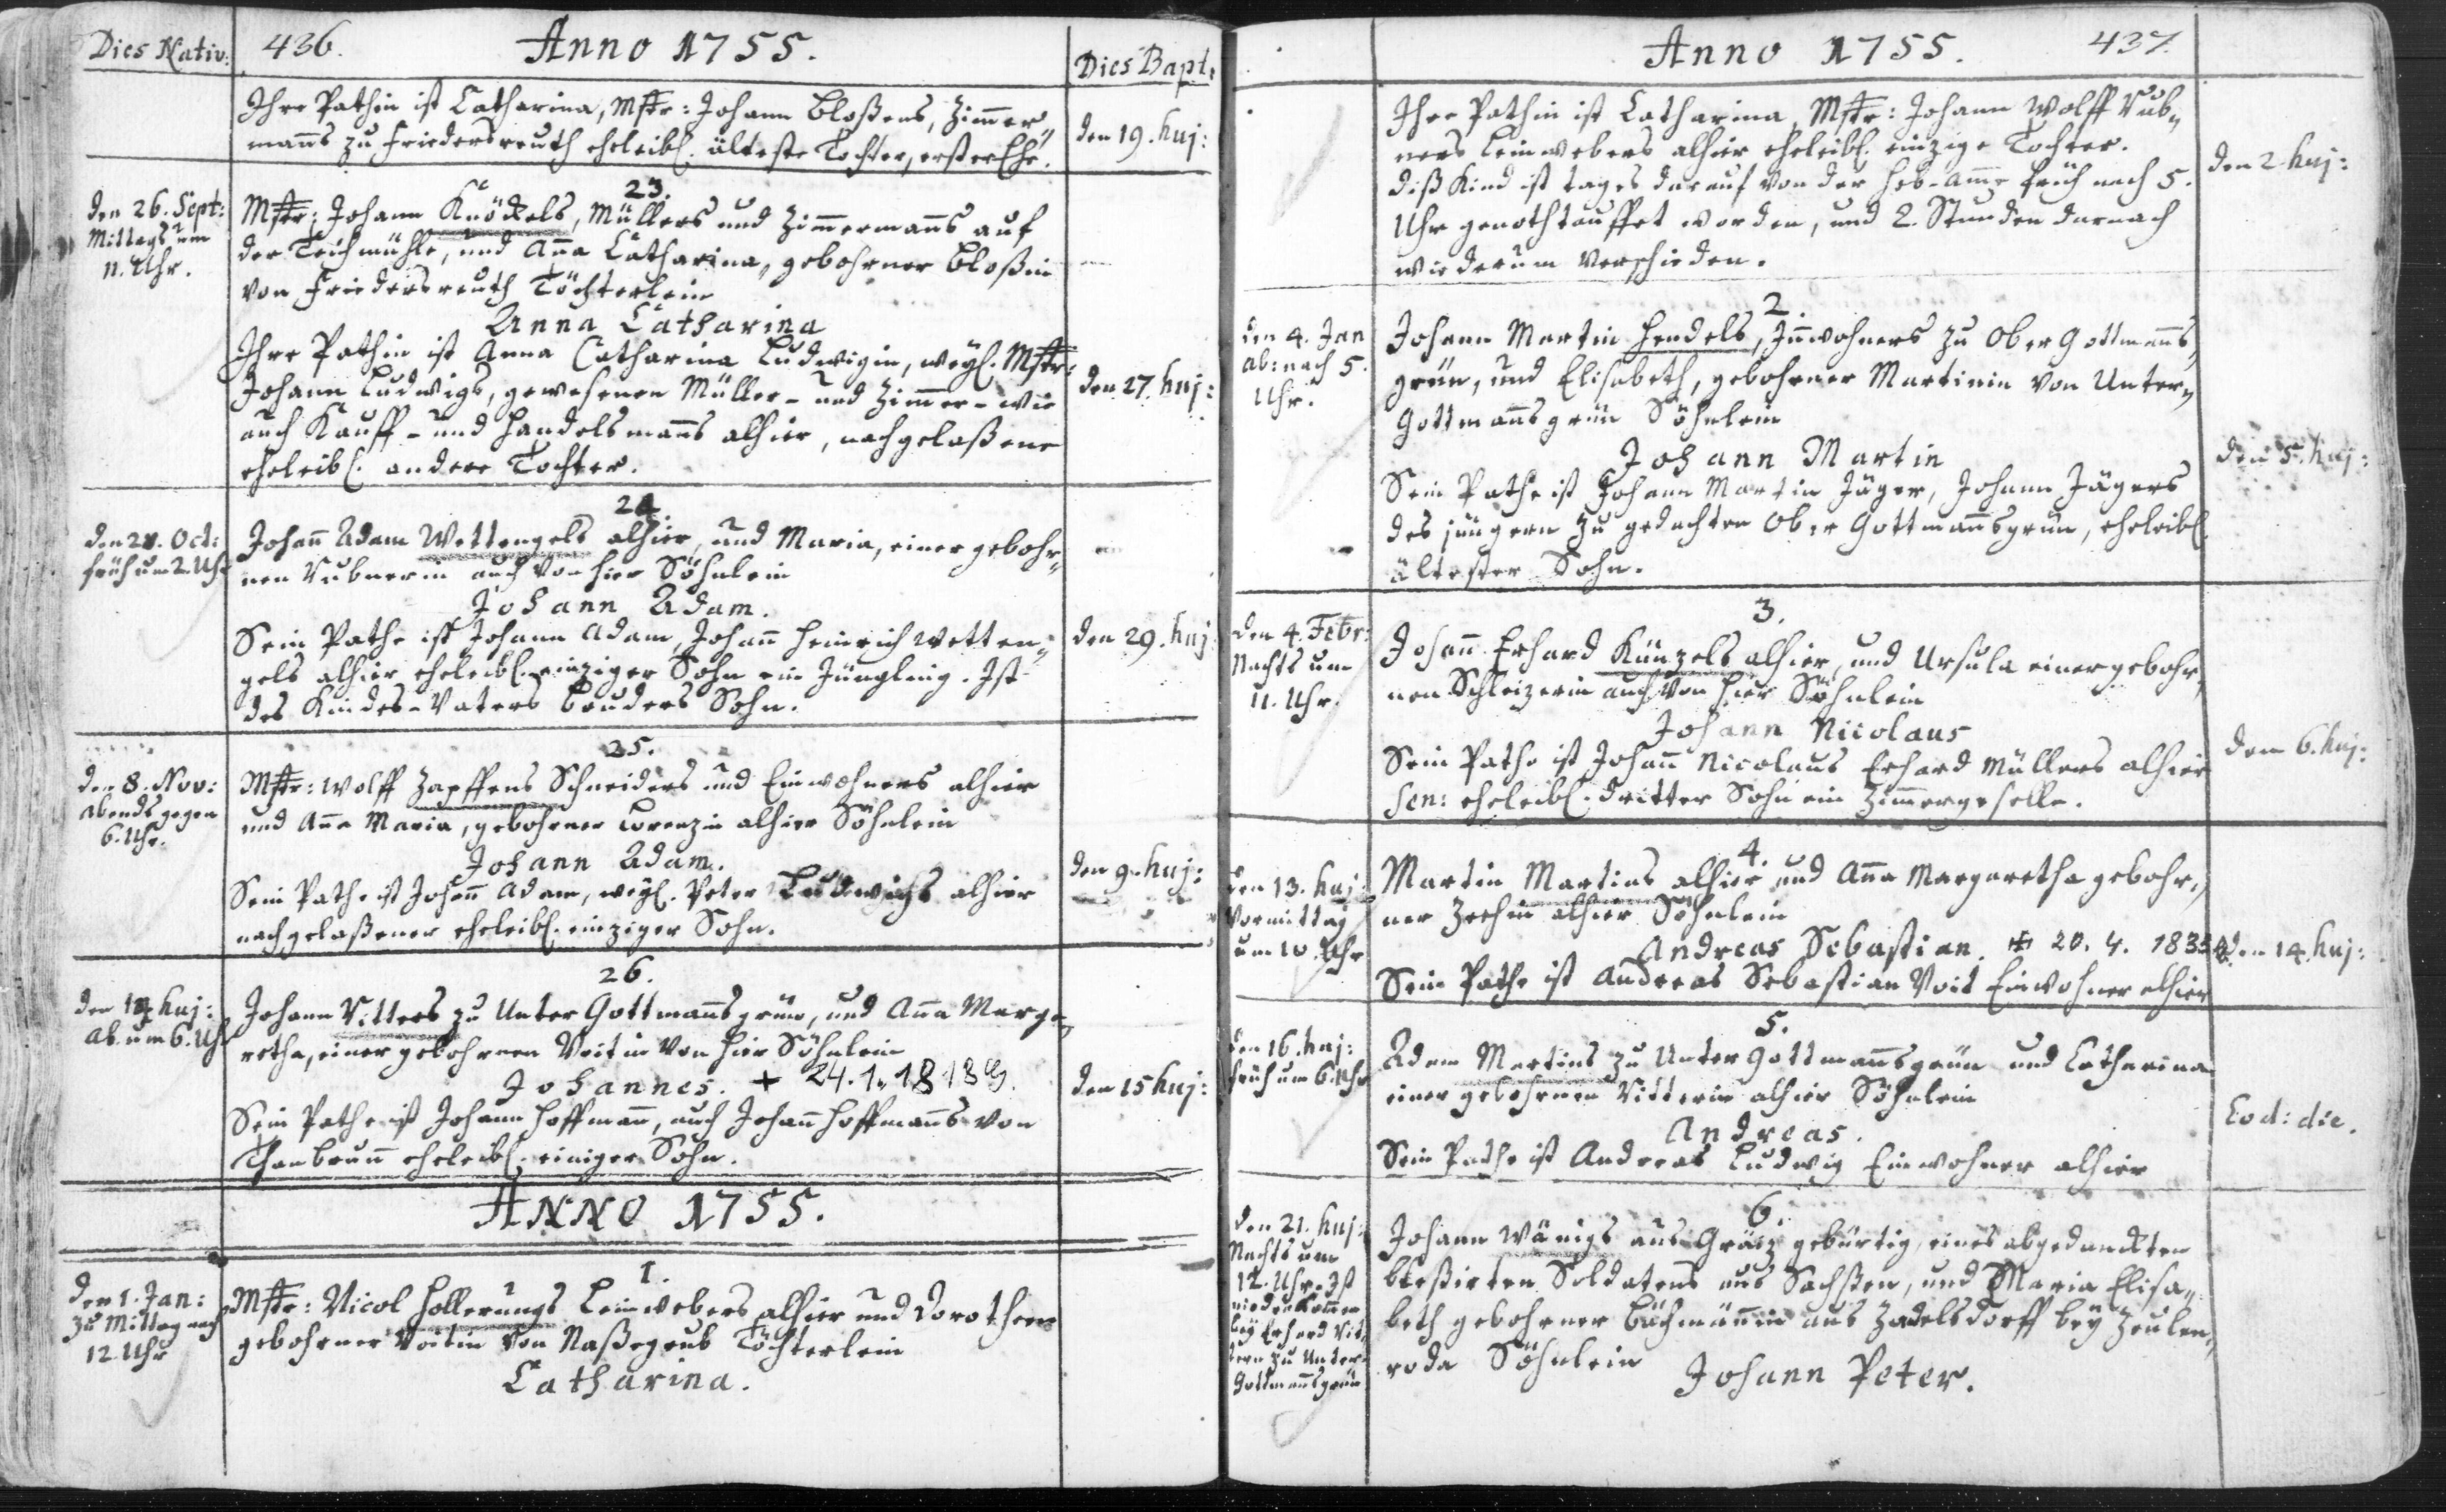 Dies Nativ:
436.
Anno 1755.
Dies Bapt:
Ihre Pathin ist Catharina, Mstr: Johann Bloßens, Zimer-
manns zu Friedersreuth eheleibl. älteste Tochter, erster Ehe.
den 19. huj:
23.
den 26. Sept:
Mittags um
11. Uhr.
Mstr: Johann Knöckels, Müllers und Zimermanns auf
der Teichmühle, und Anna Catharina, gebohrner Bloßin
von Friedersreuth Töchterlein
Anna Catharina
Ihre Pathin ist Anna Catharina Ludwigin, weyl. Mstr:
Johann Ludwigs, gewesenen Müller- und Zimmer- wie
auch Kauff- und Handelsmanns alhier, nachgelaßene
eheleibl. andere Tochter.
den 27. huj:
24.
den 28. Oct:
früh um 2. Uhr
Johann Adam Wettengels alhier, und Maria, einer gebohr-
nen Rubnerin auch von hier Söhnlein
Johann Adam.
Sein Pathe ist Johann Adam, Johann Heinrich Wetten-
gels alhier eheleibl. einziger Sohn ein Jüngling. Ist
des Kindes-Vaters Bruders Sohn.
den 29. huj
25.
den 8. Nov:
abends gegen
6. Uhr.
Mstr: Wolff Zapffens Schneiders und Einwohners alhier
und Anna Maria, gebohrner Lorenzin alhier Söhnlein
Johann Adam.
Sein Pathe ist Johann Adam, weyl. Peter Ludwigs alhier
nachgelaßener eheleibl. einziger Sohn.
den 9. huj:
26.
den 14. huj:
ab. um 6. Uhr
Johann Vitters zu Unter Gottmannsgrün, und Anna Marga-
retha, einer gebohrnen Voitin von hier Söhnlein
Johannes. + 24. 1. 1813
Sein Pathe ist Johann Hoffmann, auch Johann Hoffmanns von
Thonbrunn eheleibl. einiger Sohn.
den 15 huj:
ANNO 1755.
1.
den 1. Jan:
zu Mittag nach
12. Uhr
Mstr: Nicol Hollerungs Leinwebers alhier und Dorotheen
gebohrner Voitin von Naßegrub Töchterlein
Catharina.
Anno 1755.
437.
Ihre Pathin ist Catharina, Mstr: Johann Wolff Rub-
ners Leinwebers alhier eheleibl. einzige Tochter.
diß Kind ist tages darauf von der Heb-Amme früh nach 5.
Uhr genothtauffet worden, und 2. Stunden darnach
wiederum verschieden.
den 2. huj:
2.
den 4. Jan
ab: nach 5.
Uhr.
Johann Martin Hendels, Innwohners zu Ober Gottmanns-
grün, und Elisabeth, gebohrner Martinin von Unter-
Gottmannsgrün Söhnlein
Johann Martin
Sein Pathe ist Johann Martin Jäger, Johann Jägers
des jüngern zu gedachten Ober Gottmannsgrün, eheleibl.
ältester Sohn.
den 5. huj:
3.
den 4. Febr:
Nachts um
11. Uhr.
Johann Erhard Künzels alhier, und Ursula einer gebohr-
nen Schleizerin auch von hier Söhnlein
Johann Nicolaus
Sein Pathe ist Johann Nicolaus Erhard Müllers alhier
sen: eheleibl. dritter Sohn ein Zimmergeselle.
den 6. huj:
4.
den 13. huj:
Vormittag
um 10. Uhr
Martin Martins alhier und Anna Margaretha gebohr-
ner Zrehin alhier Söhnlein
Andreas Sebastian. + 20. 4. 1833
Sein Pathe ist Andreas Sebastian Voit Einwohner alhier
den 14. huj:
5.
den 16. huj:
früh um 6. Uhr
Adam Martins zu Unter Gottmannsgrün und Catharina
einer gebohrnen Vitterin alhier Söhnlein
Andreas.
Sein Pathe ist Andreas Ludwig Einwohner alhier
Eod: die.
6.
den 21. huj:
Nachts um
12. Uhr. Ist
niederkommen
bey Erhard Vit-
tern zu Unter-
Gottmannsgrün
Johann Wänigs aus Gräiz gebürtig, eines abgedanckten
bleßirten Soldatens aus Sachßen, und Maria Elisa-
beth gebohrner Bächmännin aus Zadelsdorff bey Zeulen-
roda Söhnlein
Johann Peter.